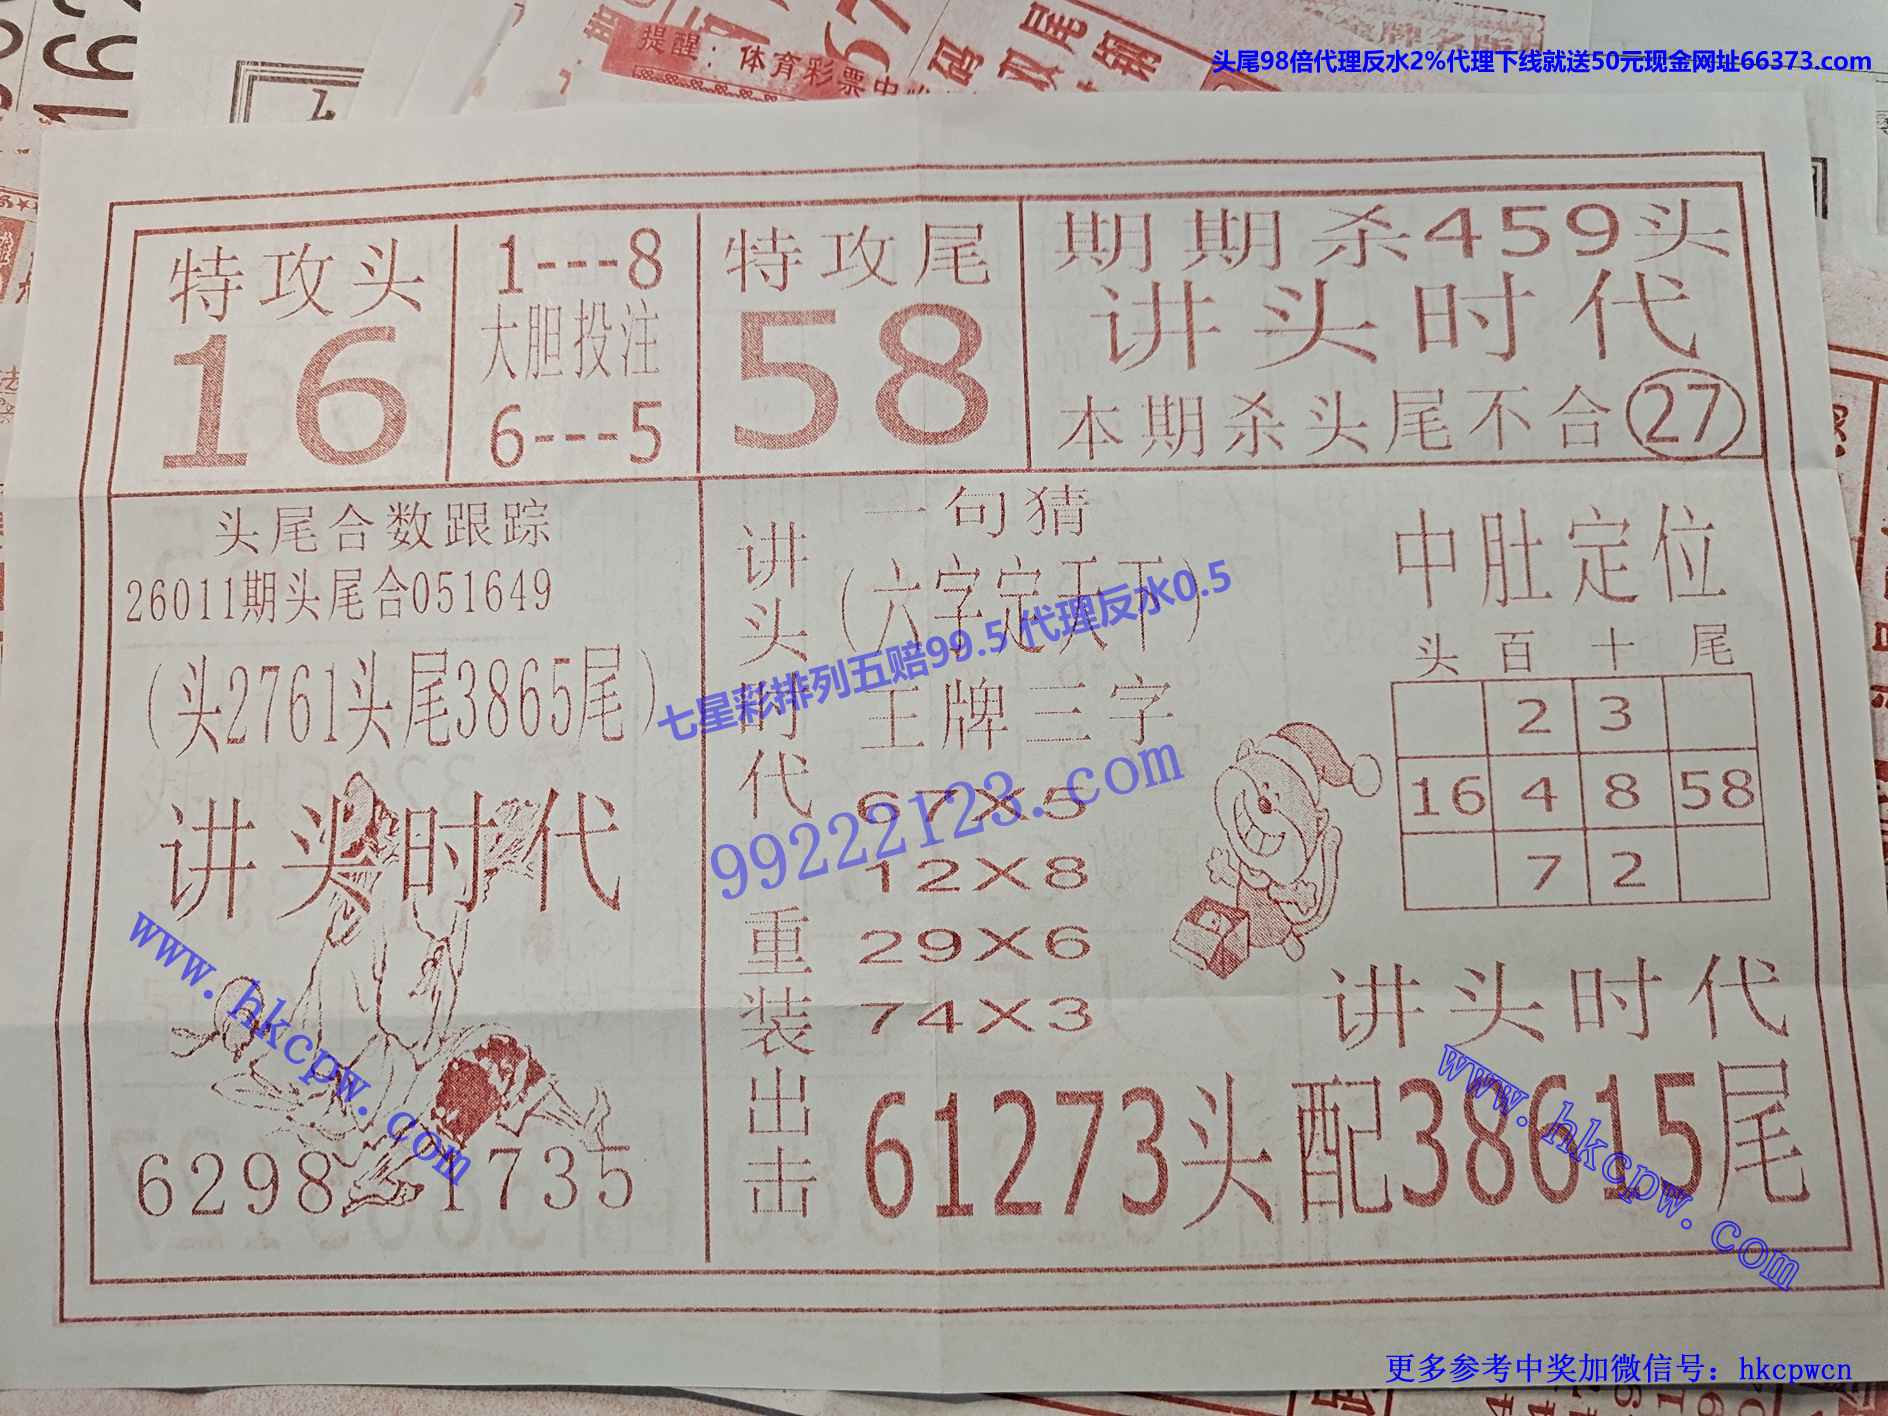 头尾98倍代理反水2%代理下线就送50元现金网址66373.com
提醒：体育彩票中
特攻头
16
1---8
大胆投注
6---5
特攻尾
58
期期杀459头
讲头时代
本期杀头尾不合27
头尾合数跟踪
26011期头尾合051649
(头2761头尾3865尾)
讲头时代
6298 1735
讲头时代重装出击
一句猜
(六字定天下)
王牌三字
67X5
12X8
29X6
74X3
中肚定位
头 百 十 尾
2 3
16 4 8 58
7 2
讲头时代
61273头配38615尾
七星彩排列五赔99.5 代理反水0.5
99222123.com
www.hkcpw.com
www.hkcpw.com
更多参考中奖加微信号：hkcpwcn